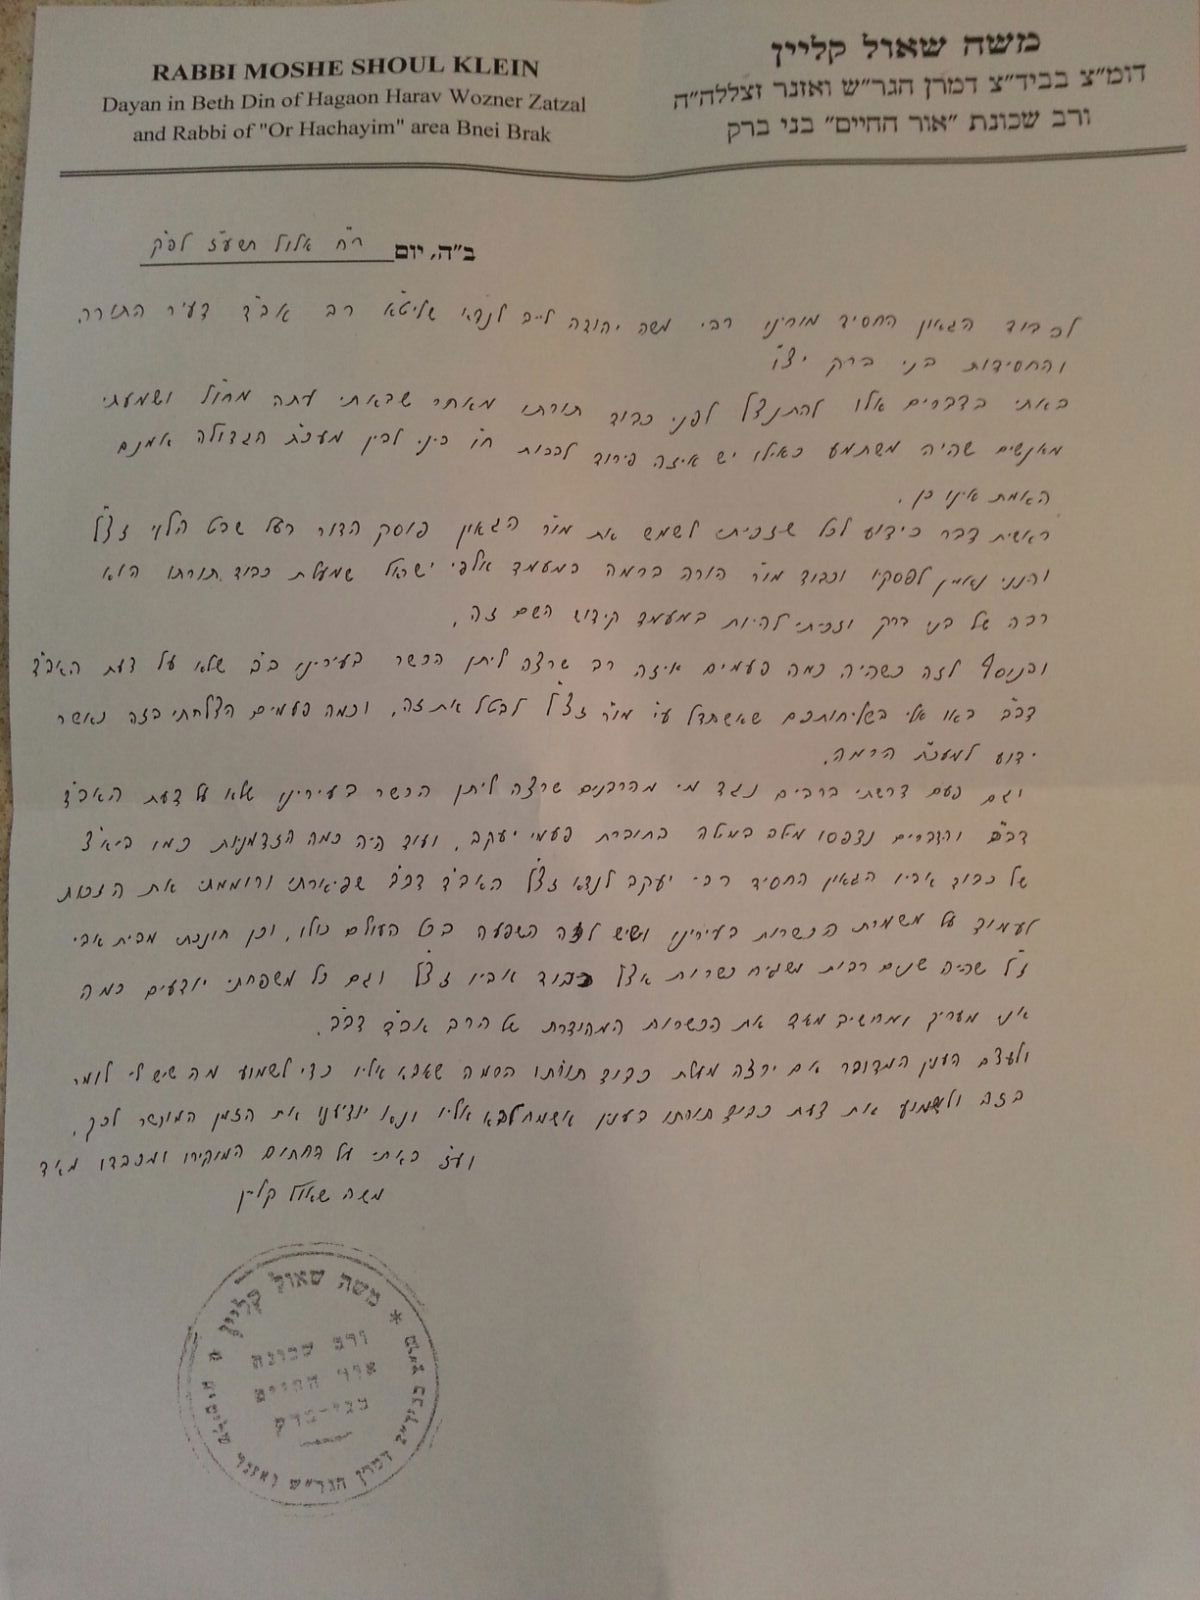 משה שאול קליין
דומ"צ בביד"צ דמרן הגר"ש ואזנר זצללה"ה
ורב שכונת "אור החיים" בני ברק
RABBI MOSHE SHOUL KLEIN
Dayan in Beth Din of Hagaon Harav Wozner Zatzal
and Rabbi of "Or Hachayim" area Bnei Brak
ב"ה, יום ר"ח אלול תשע"ז לפ"ק
לכבוד הגאון החסיד מורינו רבי משה יהודה לייב לנדא שליט"א רב אב"ד דעיר התורה
והחסידות בני ברק יצ"ו
באתי בדברים אלו להתנצל לפני כבוד תורתו מאחר שבאתי עתה מחו"ל ושמעתי
מאנשים שהיה משתמע כאילו יש איזה פירוד לבבות ח"ו ביני לבין מעכ"ת הגדולה אמנם
האמת אינו כן.
ראשית דבר כידוע לכל שזכיתי לשמש את מו"ר הגאון פוסק הדור בעל שבט הלוי זצ"ל
והנני נאמן לפסקיו וכבוד מו"ר הורה ברמה במעמד אלפי ישראל שמעלת כבוד תורתו הוא
רבה של בני ברק וזכיתי להיות במעמד קידוש השם זה.
ובנוסף לזה כשהיה כמה פעמים איזה רב שרצה ליתן הכשר בעירינו ב"ב שלא על דעת האב"ד
דב"ב באו אלי בשליחותכם שאשתדל ע"י מו"ר זצ"ל לבטל את זה, וכמה פעמים הצלחתי בזה כאשר
ידוע למעכ"ת הרמה.
וגם פעם דרשתי ברבים נגד מי מהרבנים שרצה ליתן הכשר בעירינו שלא על דעת האב"ד
דב"ב והדברים נדפסו מילה במילה בחוברת פעמי יעקב, ועוד היה כמה הזדמנות כמו ביא"צ
של כבוד אביו הגאון החסיד רבי יעקב לנדא זצ"ל האב"ד דב"ב שפיארתי ורוממתי את הזכות
לעמוד על משמרת הכשרות בעירינו ושיש לזה השפעה בכל העולם כולו, וכן חונכתי מבית אבי
ז"ל שהיה שנים רבות משגיח כשרות אצל כבוד אביו זצ"ל וגם כל משפחתי יודעים כמה
אני מעריך ומחשיב מאד את הכשרות המהודרת של הרב אב"ד דב"ב.
ולעצם הענין המדובר אם ירצה מעלת כבוד תורתו הרמה שאבא אליו כדי לשמוע מה שיש לי לומר
בזה ולשמוע את דעת כבוד תורתו בענין אשמח לבא אליו ונא יודיענו את הזמן המוכשר לכך.
ועז"כ באתי על החתום המוקירו ומכבדו מאד
משה שאול קליין
משה שאול קליין
ורב שכונת
אור החיים
בני-ברק
דמרן הגר"ש ואזנר שליט"א